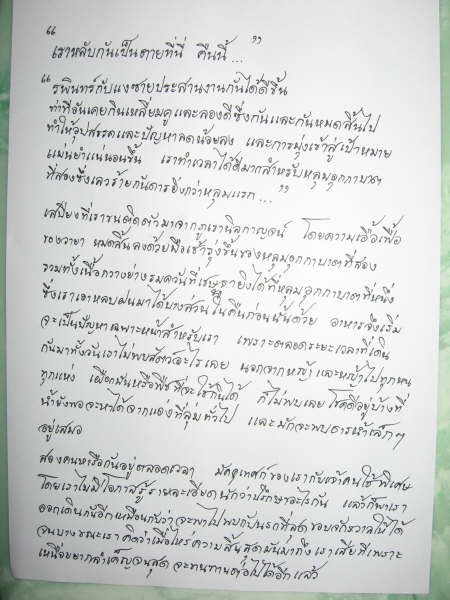 “
เราหลับกันเป็นตายที่นี่ คืนนี้ ... ”
“ รพินทร์กับแงซายประสานงานกันได้ดีขึ้น
ท่าที่อันเคยกินเหลี่ยมคูและลองดีซึ่งกันและกันหมดสิ้นไป
ทำให้อุปสรรคและปัญหาลดน้อยลง และการมุ่งเข้าสู่เป้าหมาย
แม่นยำแน่นอนขึ้น เราทำเวลาได้ดีมากสำหรับหลุมอุกกาบาต
ที่สองซึ่งเลวร้ายกันดารยิ่งกว่าหลุมแรก ... ”
เสบียงที่เราขนติดตัวมาจากภูเขานิลกาญจน์ โดยความเอื้อเฟื้อ
ของวายา หมดสิ้นลงด้วยมื้อเช้ารุ่งขึ้นของหลุมอุกกาบาตที่สอง
รวมทั้งเนื้อกวางย่างรมควันที่เชษฐายิงได้ที่หลุมอุกกาบาตที่หนึ่ง
ซึ่งเราเอาหลบฝนมาได้บางส่วนในคืนก่อนนั้นด้วย อาหารจึงเริ่ม
จะเป็นปัญหาเฉพาะหน้าสำหรับเรา เพราะตลอดระยะเวลาที่เดิน
กันมาทั้งวันเราไม่พบสัตว์อะไรเลย นอกจากหญ้าและหญ้าไปทุกหน
ทุกแห่ง เผือกมันหรือพืชที่จะใช้กินได้ ก็ไม่พบเลย โชคดีอยู่บ้างที่
น้ำยังพอจะหาได้จากแอ่งที่ลุ่มทั่วไป และมักจะพบธารน้ำเล็กๆ
อยู่เสมอ
สองคนหารือกันอยู่ตลอดเวลา มัคคุเทศก์ของเรากับเจ้าคนใช้พิเศษ
โดยเราไม่มีโอกาสรู้รายละเอียดนักว่าปรึกษาอะไรกัน แล้วก็พาเรา
ออกเดินกันอีกเหมือนกับว่าจะพาไปพบกับนรกที่สุดขอบจักรวาลให้ได้
จนบางขณะเราคิดว่าเมื่อไหร่ความสิ้นสุดมันมาถึงเราเสียทีเพราะ
เหนื่อยยากลำเค็ญจนสุด จะทนทานต่อไปได้อีกแล้ว